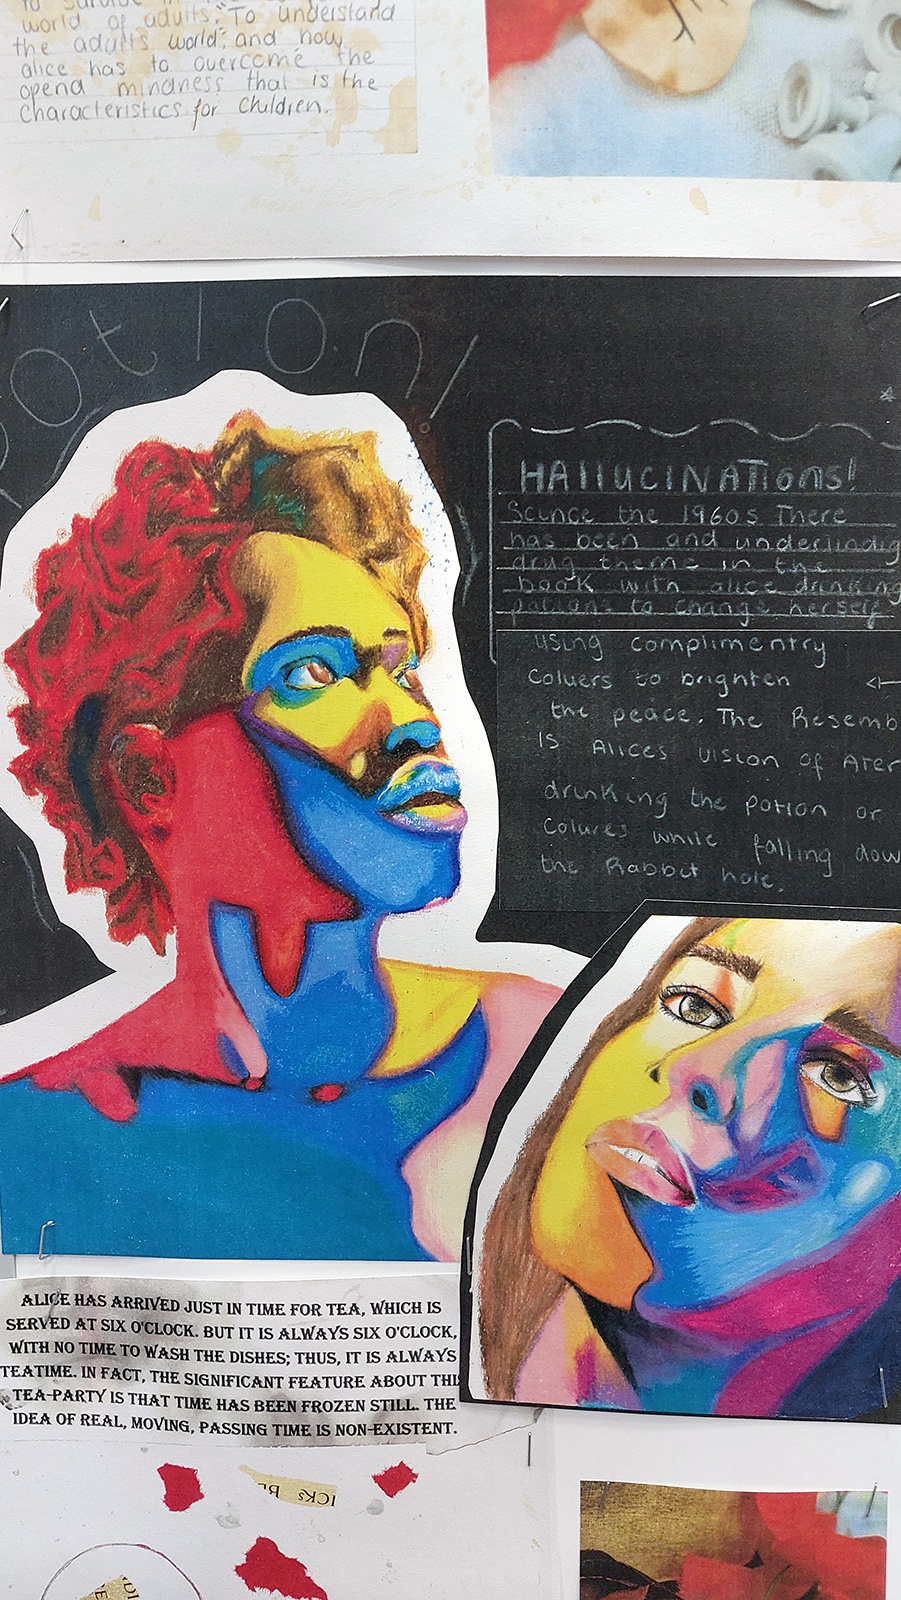 world of adults". To understand
the adults world, and how
alice has to overcome the
opend mindness that is the
characteristics for children.
Potion!
HAllUCINATions!
Scince the 1960s There
has been and underlindig
drug theme in the
book with alice drinking
potions to change herself
using complimentry
Coluers to brighten
the peace. The Resemb
is Alices vision of Ater
drinking the potion or
Colures while falling dow
the Rabbit hole.
ALICE HAS ARRIVED JUST IN TIME FOR TEA, WHICH IS
SERVED AT SIX O'CLOCK. BUT IT IS ALWAYS SIX O'CLOCK,
WITH NO TIME TO WASH THE DISHES; THUS, IT IS ALWAYS
TEATIME. IN FACT, THE SIGNIFICANT FEATURE ABOUT THI
TEA-PARTY IS THAT TIME HAS BEEN FROZEN STILL. THE
IDEA OF REAL, MOVING, PASSING TIME IS NON-EXISTENT.